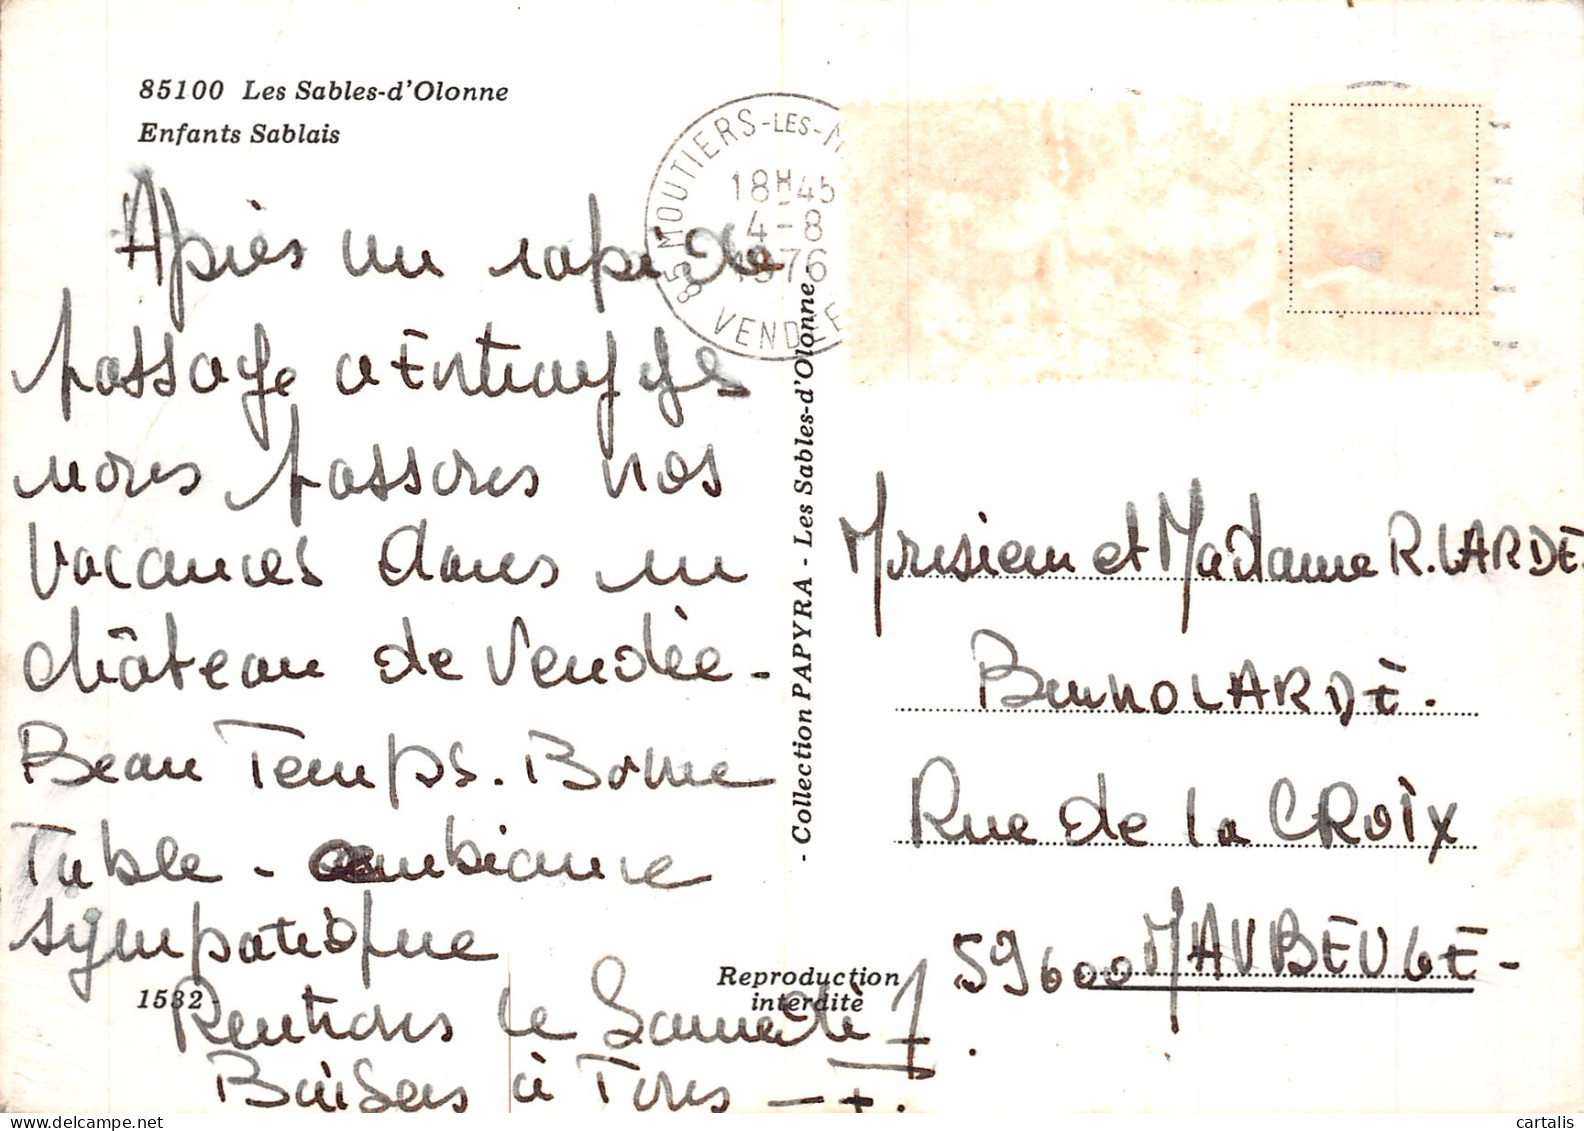 85100 Les Sables-d'Olonne
Enfants Sablais
85 MOUTIERS-LES-M
18H45
4-8
1976
VENDEE
Après un rapide
passage
nous passons nos
Vacances dans un
château de Vendée -
Beau Temps. Bonne
Table - ambiance
sympathique
Rentrons le Samedi 7
Baisers à Tous -
1532-
Reproduction
interdite
- Collection PAPYRA - Les Sables-d'Olonne -
Monsieur et Madame R. LARDÉ.
Bruno LARDÉ.
Rue de la CROIX
59600 MAUBEUGE -
cartalis